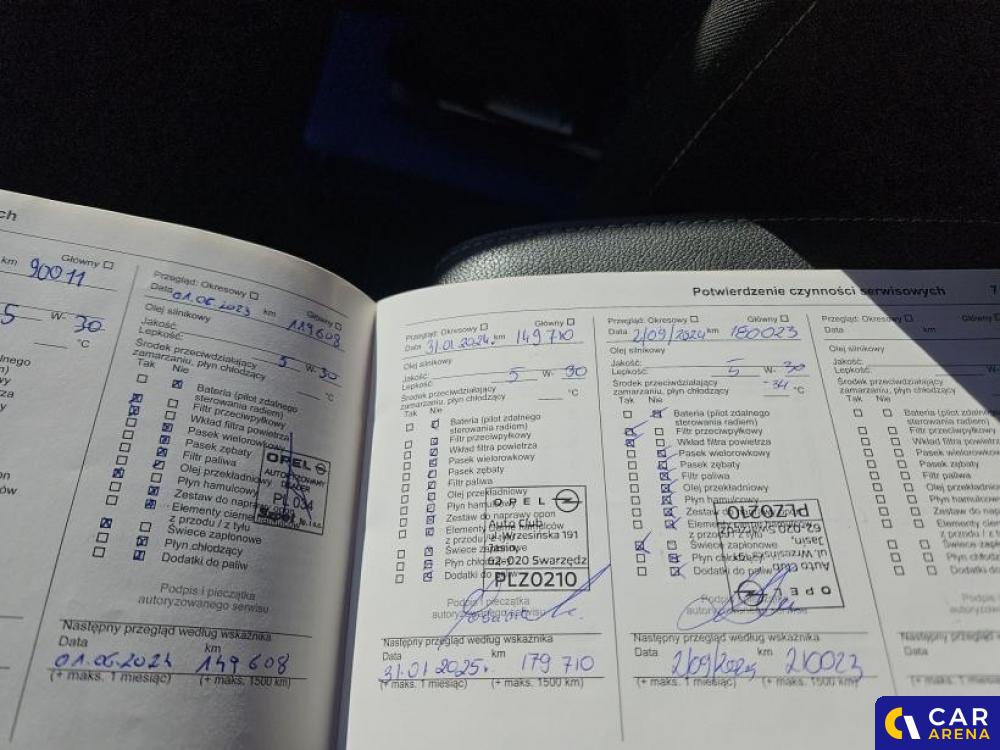 ch
Główny
km 90011
5 W- 30
°C
Przegląd: Okresowy
Główny
Data 01.06.2023 km 119608
Olej silnikowy
Jakość:
Lepkość: 5 W- 30
Środek przeciwdziałający
zamarzaniu, płyn chłodzący °C
Tak Nie
Bateria (pilot zdalnego
sterowania radiem)
Filtr przeciwpyłkowy
Wkład filtra powietrza
Pasek wielorowkowy
Pasek zębaty
Filtr paliwa
Olej przekładniowy
Płyn hamulcowy
Zestaw do naprawy opon
Elementy cierne
z przodu / z tyłu
Świece zapłonowe
Płyn chłodzący
Dodatki do paliw
OPEL
AUTORYZOWANY
DEALER
PL 034
Podpis i pieczątka
autoryzowanego serwisu
Następny przegląd według wskaźnika
Data km
01.06.2024 149 608
(+ maks. 1 miesiąc) (+ maks. 1500 km)
Potwierdzenie czynności serwisowych 7
Przegląd: Okresowy Główny
Data 31.01.2024r km 149 710
Olej silnikowy
Jakość:
Lepkość: 5 W- 30
Środek przeciwdziałający
zamarzaniu, płyn chłodzący °C
Tak Nie
Bateria (pilot zdalnego
sterowania radiem)
Filtr przeciwpyłkowy
Wkład filtra powietrza
Pasek wielorowkowy
Pasek zębaty
Filtr paliwa
Olej przekładniowy
Płyn hamulcowy
Zestaw do naprawy opon
Elementy cierne hamulców
z przodu / z tyłu
Świece zapłonowe
Płyn chłodzący
Dodatki do paliw
OPEL
Auto Club
ul.Wrzesińska 191
Jasin,
62-020 Swarzędz
PLZ0210
Podpis i pieczątka
autoryzowanego serwisu
Następny przegląd według wskaźnika
Data km
31.01 2025r. 179 710
(+ maks. 1 miesiąc) (+ maks. 1500 km)
Przegląd: Okresowy Główny
Data 2/09/2024 km 180023
Olej silnikowy
Jakość:
Lepkość: 5 W- 30
Środek przeciwdziałający
zamarzaniu, płyn chłodzący -34 °C
Tak Nie
Bateria (pilot zdalnego
sterowania radiem)
Filtr przeciwpyłkowy
Wkład filtra powietrza
Pasek wielorowkowy
Pasek zębaty
Filtr paliwa
Olej przekładniowy
Płyn hamulcowy
Zestaw do naprawy opon
Elementy cierne hamulców
z przodu / z tyłu
Świece zapłonowe
Płyn chłodzący
Dodatki do paliw
OPEL
Auto Club
Jasin,
62-020
PLZ0210
Następny przegląd według wskaźnika
Data km
2/09/2025 210023
(+ maks. 1 miesiąc) (+ maks. 1500 km)
Przegląd: Okresowy
Data km
Olej silnikowy
Jakość:
Lepkość:
Środek przeciwdziałający
zamarzaniu, płyn chłodzący
Tak Nie
Bateria (pilot zdalnego
sterowania radiem)
Filtr przeciwpyłkowy
Wkład filtra powietrza
Pasek
Pasek zębaty
Filtr paliwa
Płyn
Zestaw do
Elementy
z przodu / z tyłu
Podpis i
Data
CAR
ARENA